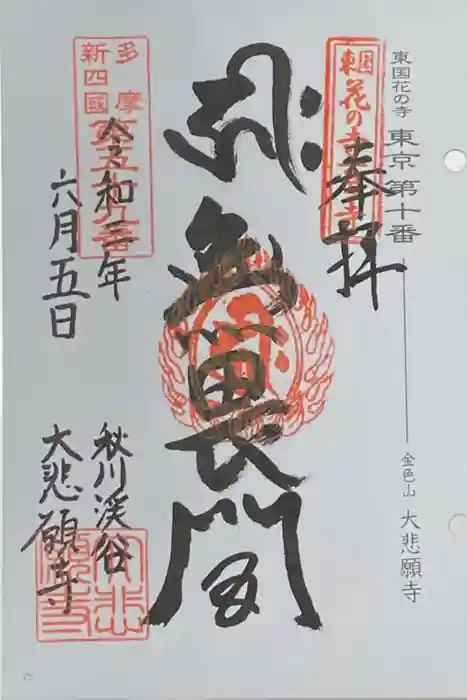 東国花の寺 東京第十番
金色山 大悲願寺
東国花の寺
奉拝
無畏閣
多摩
新四國
令和三年
六月五日
秋川渓谷
大悲願寺